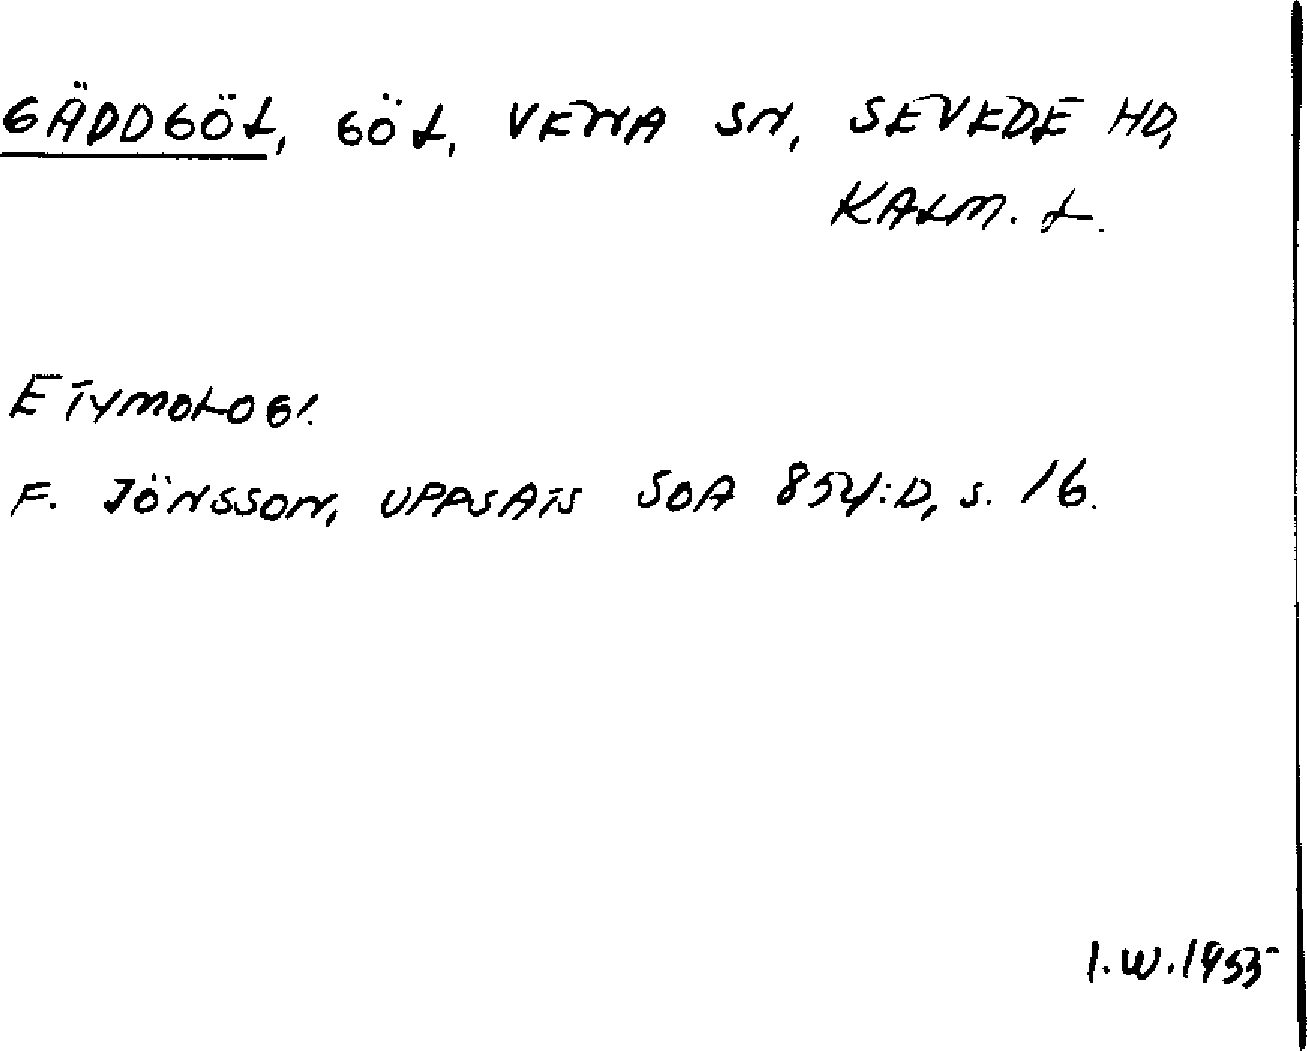 GÄDDGÖL, GÖL, VENA SN, SEVEDE HD,
KALM. L.
ETYMOLOGI.
F. JÖNSSON, UPPSATS SOA 854:D, S. 16.
I.W. 1955